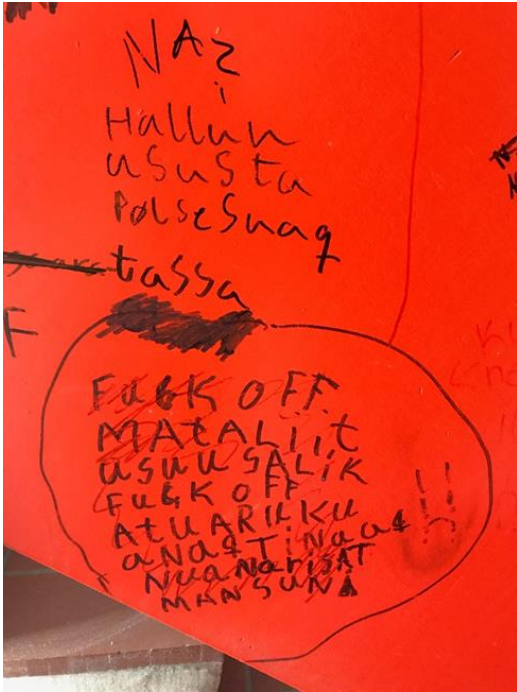 NAZ
i
Hallun
ususta
PolseSuaq
tassa
F
FUCK OFF
MATALiit
USUUSALIK
FUCK OFF
AtUARUKU
aNaqTiNaaq !!
NUaNaRiSAT
MANSUNA